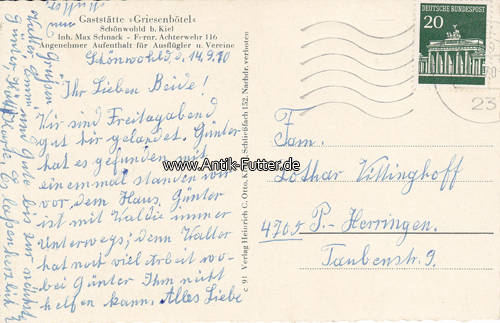 Gaststätte »Griesenbötel«
Schönwohld b. Kiel
Inh. Max Schnack - Fernr. Achterwehr 116
Angenehmer Aufenthalt für Ausflügler u. Vereine
Schönwohld d. 14.9.70
Ihr Lieben Beide!
Wir sind Freitagabend
gut hir gelandet. Günter
hat es gefunden mit
einemmal standen wir
vor dem Haus. Günter
ist mit Waldie immer
Unterwegs; denn Walter
hat noch viel Arbeit wo-
bei Günter Ihm nütt
helfen kann. Alles Liebe
Grüßen
Walter, Emmi und Guste bis zur nächste
Günter
c 91 Verlag Heinrich C. Otto, Schließfach 152, Nachdr. verboten
DEUTSCHE BUNDESPOST
20
23
www.Antik-Futter.de
Fam.
Lothar Vittinghoff
4705 P.-Herringen.
Taubenstr. 9.